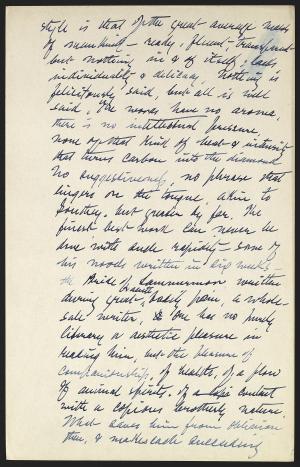 style is that of the great average mass
of mankind – ready, fluent, transparent
but nothing in & of itself; lacks
individuality, & nothing is
felicitously said, but all is well
said. The words have no aroma,
there is no intellectual pressure,
none of that kind of heat & intensity
that turns carbon into the diamond
No suggestiveness, no phrase that
lingers on the tongue, akin to
Southey, but greater by far. The
finest best work can never be
done with such rapidity – some of
his novels written in six weeks –
the Bride of Lammermoor written
during great bodily pain, a whole-
sale writer, One has no purely
literary or aesthetic pleasure in
reading him, but the pleasure of
companionship, of health, of a flow
of animal spirits, of a contact
with a copious brotherly nature.
What saves him from oblivion
then, & makes each succeeding